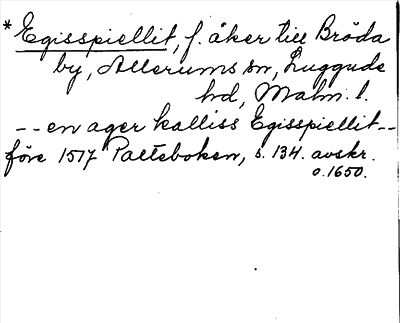 * Egisspiellit, f. åker till Bröda
by, Allerums sn, Luggude
hd, Malm. l.
-- en ager kalliss Egisspiellit --
före 1517 Palteboken, s. 134. avskr.
o. 1650.